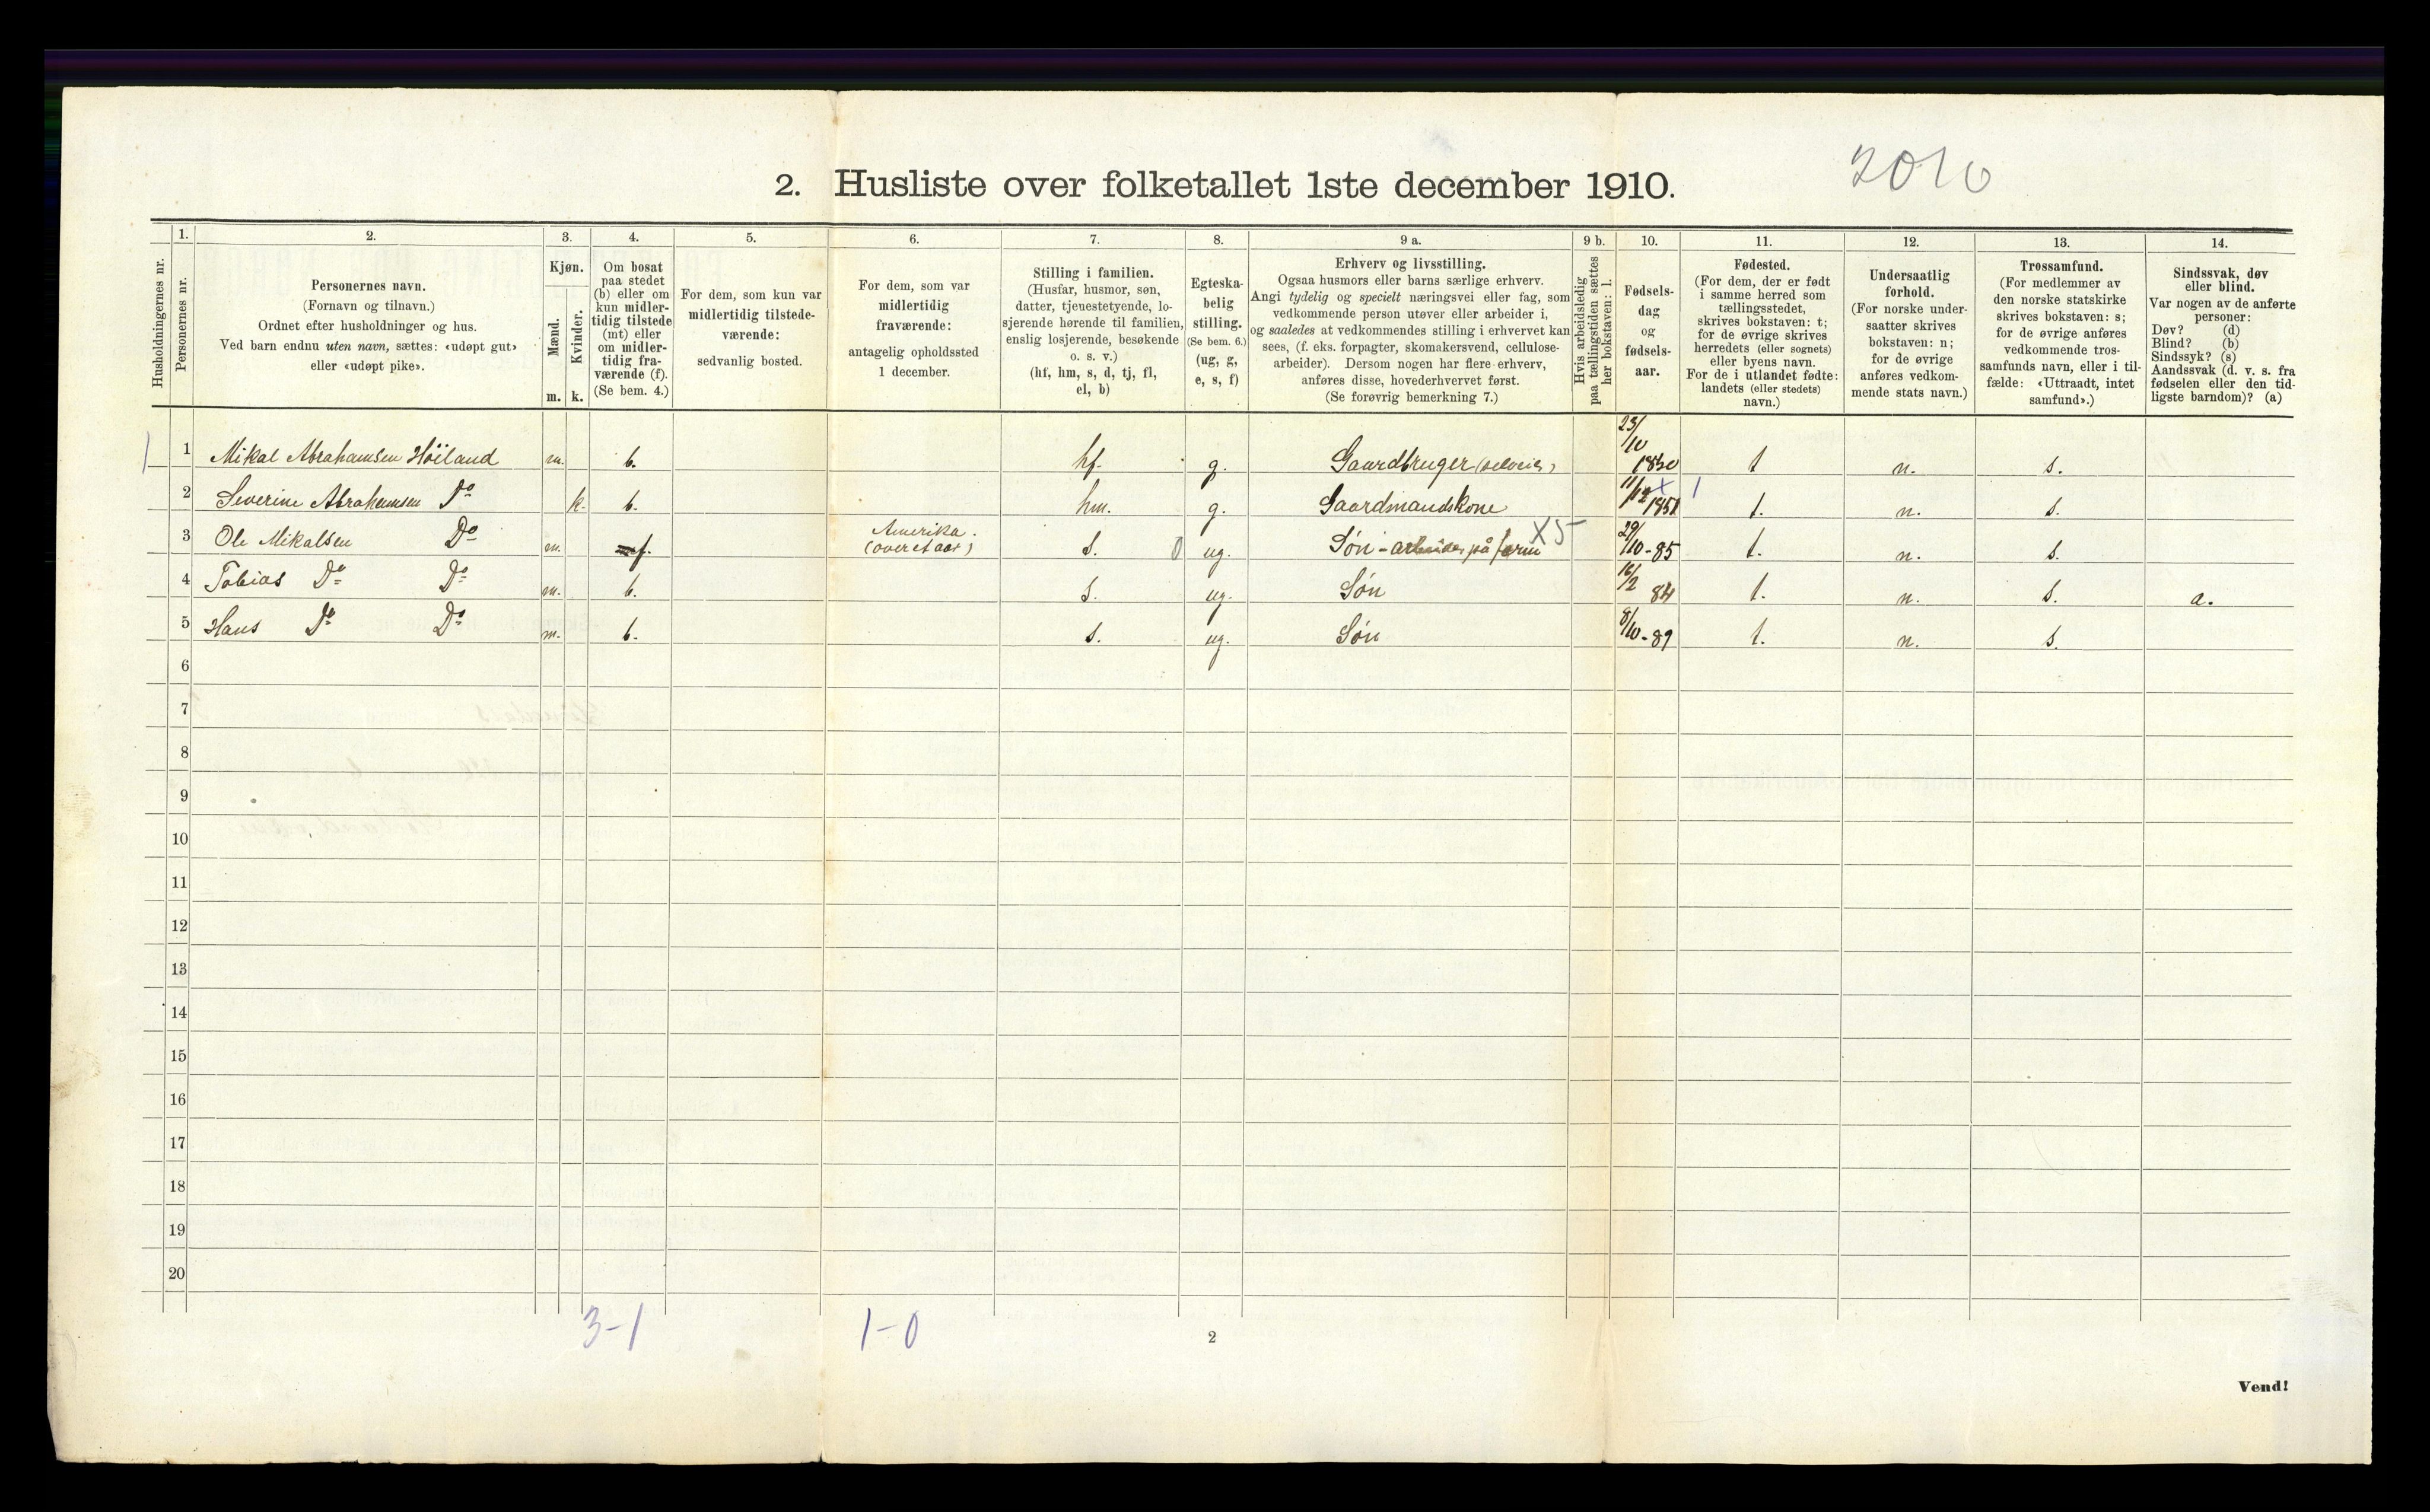 2010
2. Husliste over folketallet 1ste december 1910.
Husholdningernes nr.
1.
Personernes nr.
2.
Personernes navn.
(Fornavn og tilnavn.)
Ordnet efter husholdninger og hus.
Ved barn endnu uten navn, sættes: «udøpt gut»
eller «udøpt pike».
3.
Kjøn.
Mænd.
Kvinder.
m. k.
4.
Om bosat
paa stedet
(b) eller om
kun midler-
tidig tilstede
(mt) eller
om midler-
tidig fra-
værende (f).
(Se bem. 4.)
5.
For dem, som kun var
midlertidig tilstede-
værende:
sedvanlig bosted.
6.
For dem, som var
midlertidig
fraværende:
antagelig opholdssted
1 december.
7.
Stilling i familien.
(Husfar, husmor, søn,
datter, tjenestetyende, lo-
sjerende hørende til familien,
enslig losjerende, besøkende
o. s. v.)
(hf, hm, s, d, tj, fl,
el, b)
8.
Egteska-
belig
stilling.
(Se bem. 6.)
(ug, g,
e, s, f)
9 a.
Erhverv og livsstilling.
Ogsaa husmors eller barns særlige erhverv.
Angi tydelig og specielt næringsvei eller fag, som
vedkommende person utøver eller arbeider i,
og saaledes at vedkommendes stilling i erhvervet kan
sees, (f. eks. forpagter, skomakersvend, cellulose-
arbeider). Dersom nogen har flere erhverv,
anføres disse, hovederhvervet først.
(Se forøvrig bemerkning 7.)
9 b.
Hvis arbeidsledig
paa tællingstiden sættes
her bokstaven: l.
10.
Fødsels-
dag
og
fødsels-
aar.
11.
Fødested.
(For dem, der er født
i samme herred som
tællingsstedet,
skrives bokstaven: t;
for de øvrige skrives
herredets (eller sognets)
eller byens navn.
For de i utlandet fødte:
landets (eller stedets)
navn.)
12.
Undersaatlig
forhold.
(For norske under-
saatter skrives
bokstaven: n;
for de øvrige
anføres vedkom-
mende stats navn.)
13.
Trossamfund.
(For medlemmer av
den norske statskirke
skrives bokstaven: s;
for de øvrige anføres
vedkommende tros-
samfunds navn, eller i til-
fælde: «Uttraadt, intet
samfund».)
14.
Sindssvak, døv
eller blind.
Var nogen av de anførte
personer:
Døv? (d)
Blind? (b)
Sindssyk? (s)
Aandssvak (d. v. s. fra
fødselen eller den tid-
ligste barndom)? (a)
1 1 Mikal Abrahamsen Høiland m. b. hf. g. Gaardbruger (selveier) 23/10 1850 t n. s.
2 Severine Abrahamsen Do k. b. hm. g. Gaardmandskone 11/12 x 1851 1 t. n. s.
3 Ole Mikalsen Do m. f. Amerika. (over et aar) s. 0 ug. Søn - arbeider på farm X5 29/10-85 t. n. s.
4 Tobias Do Do m. b. s. ug. Søn 16/2 84 t. n. s. a.
5 Hans Do Do m. b. s. ug. Søn 8/10-89 t. n. s.
6
7
8
9
10
11
12
13
14
15
16
17
18
19
20
3-1 1-0
2
Vend!